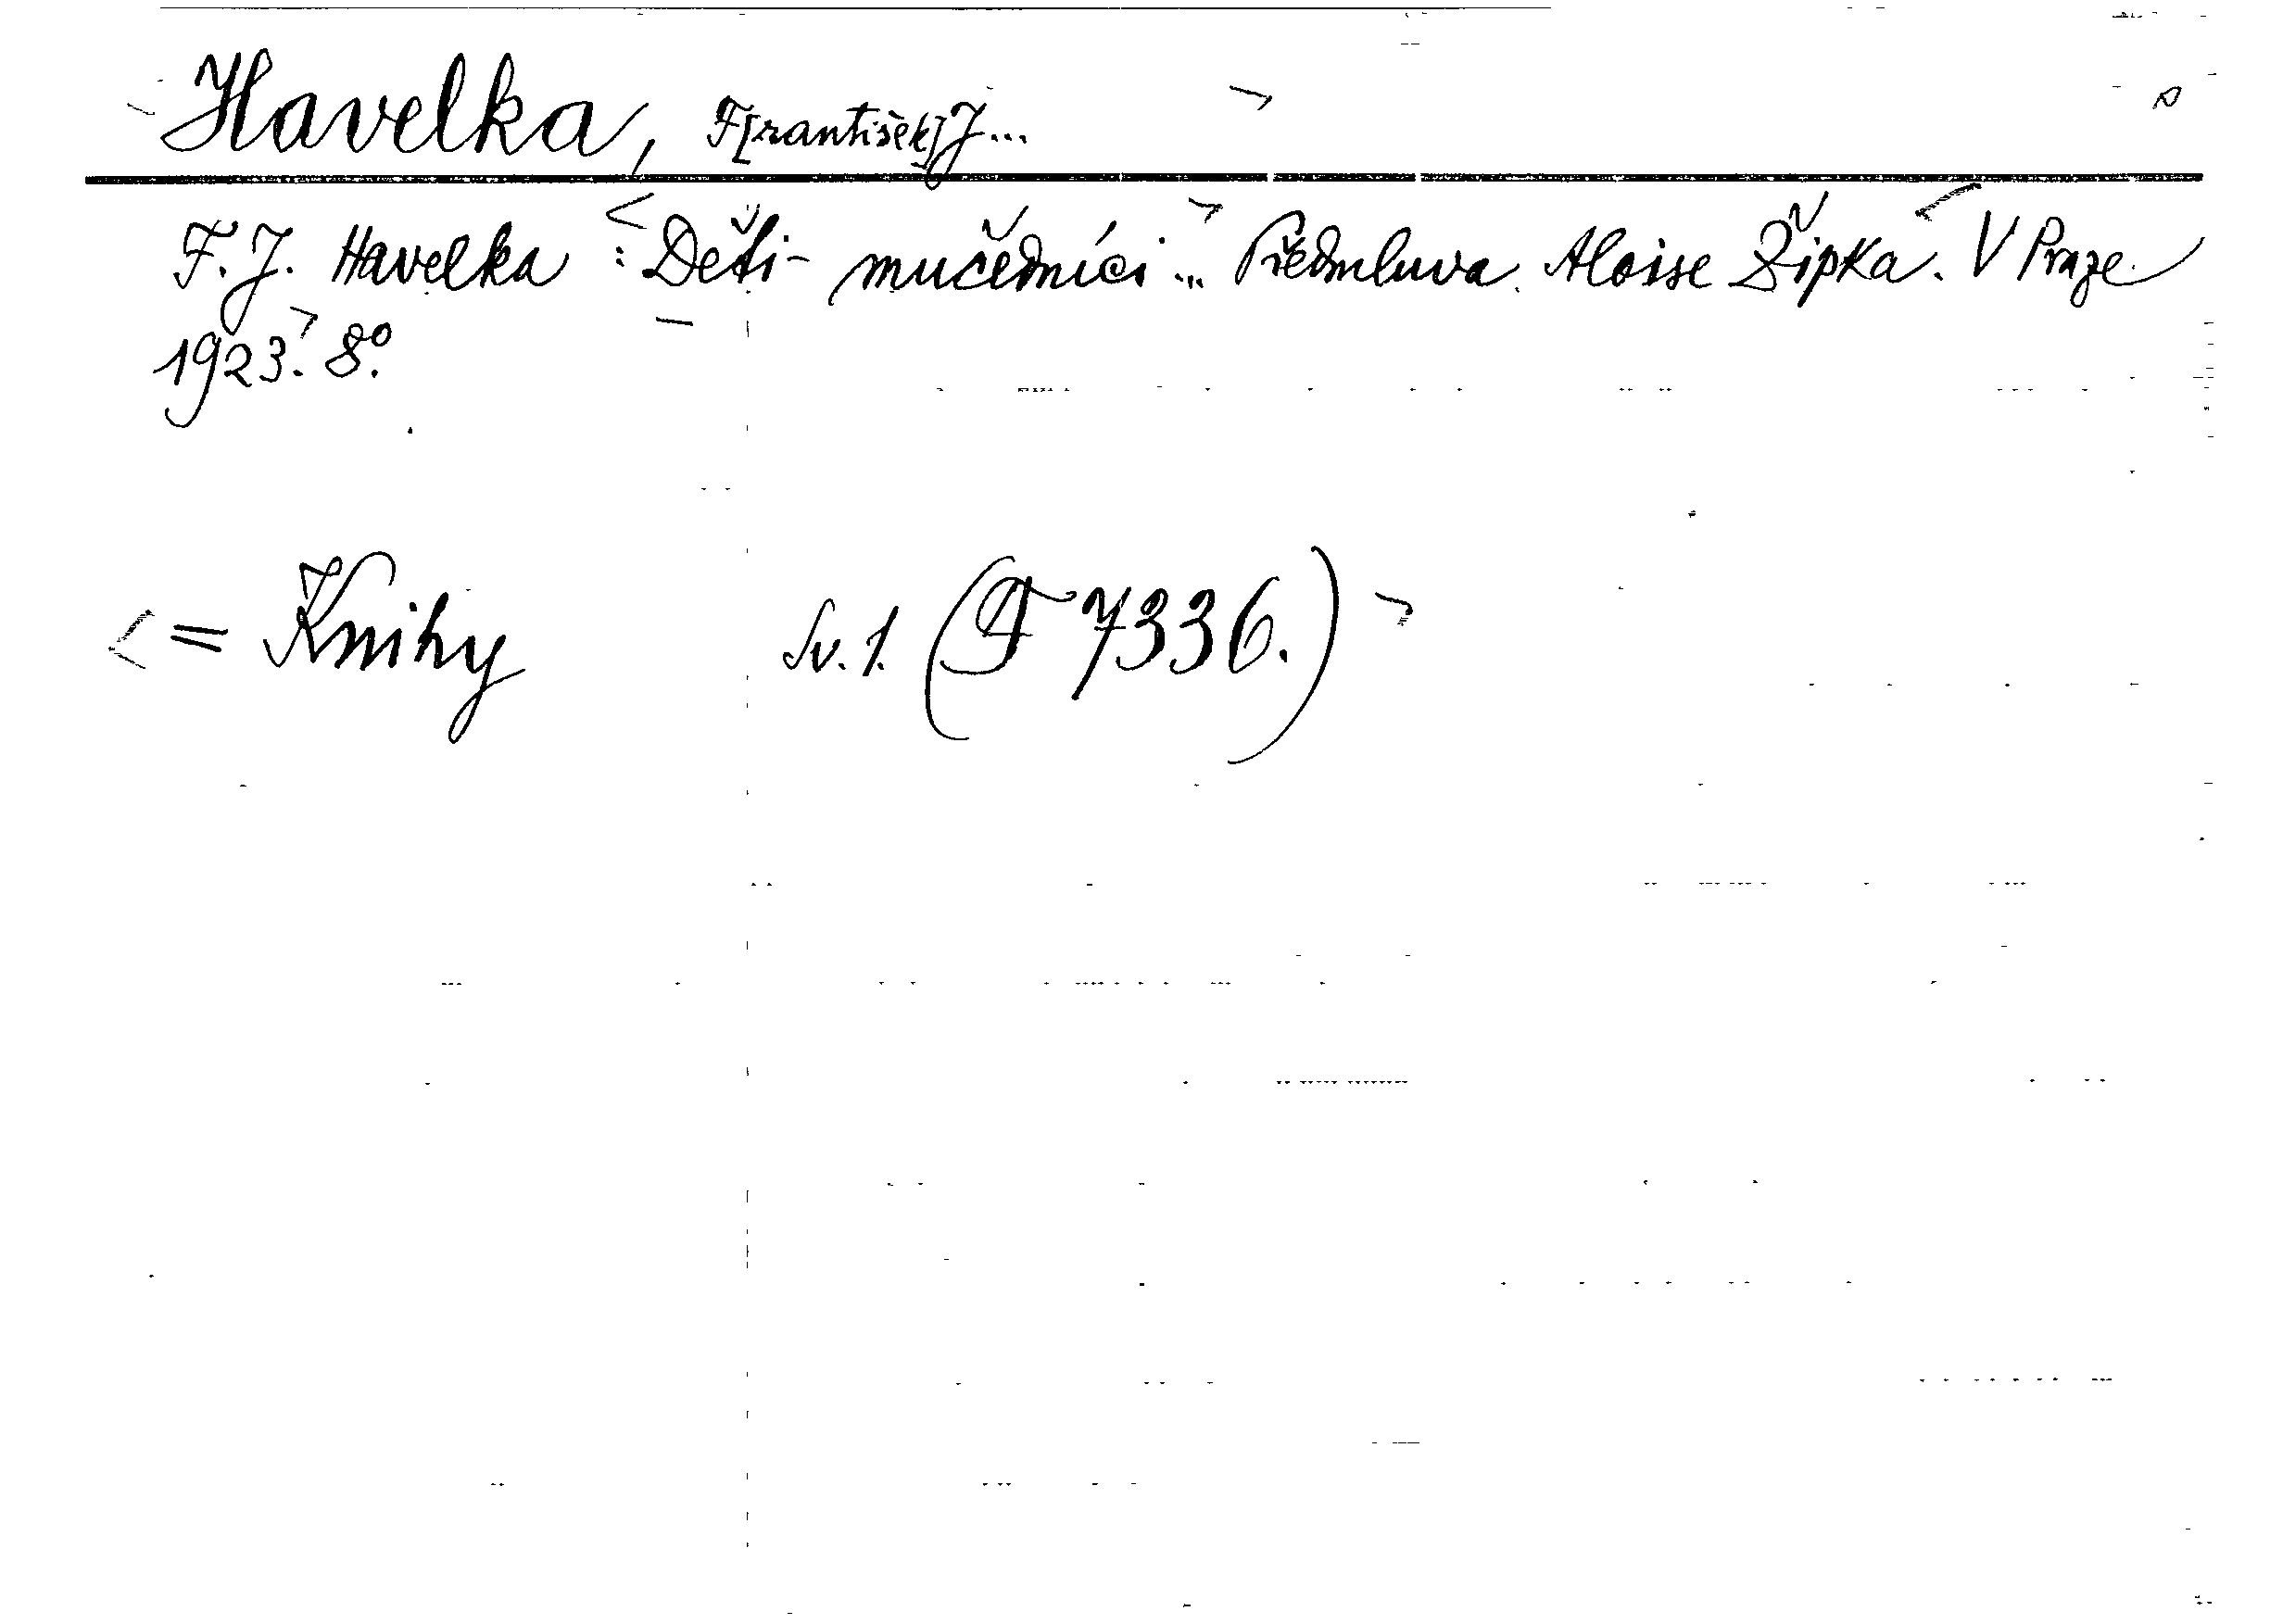 Havelka, F[rantišek] J...
F. J. Havelka : Děti - mučedníci ... Předmluva Aloise Žipka. V Praze
1923. 8°.
= Knihy Sv. 1. (F 7336.)